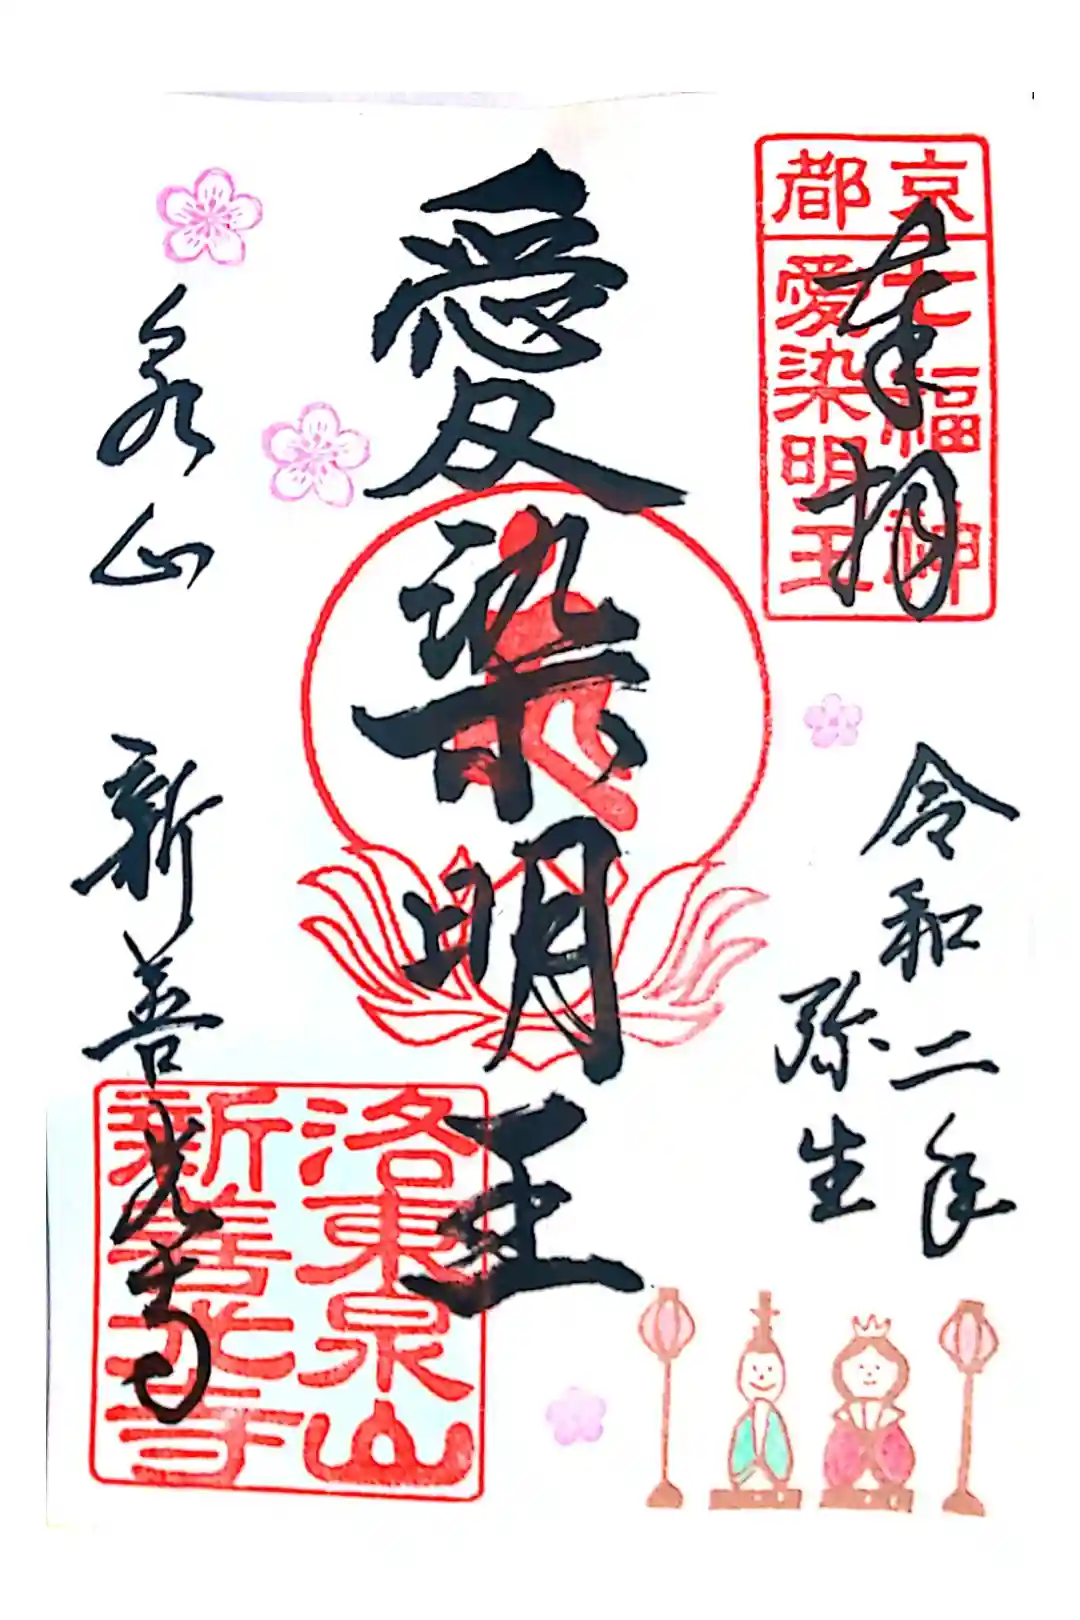 京都
七福神
愛染明王
奉拝
令和二年
弥生
愛染明王
泉山 新善光寺
洛東泉山
新善光寺